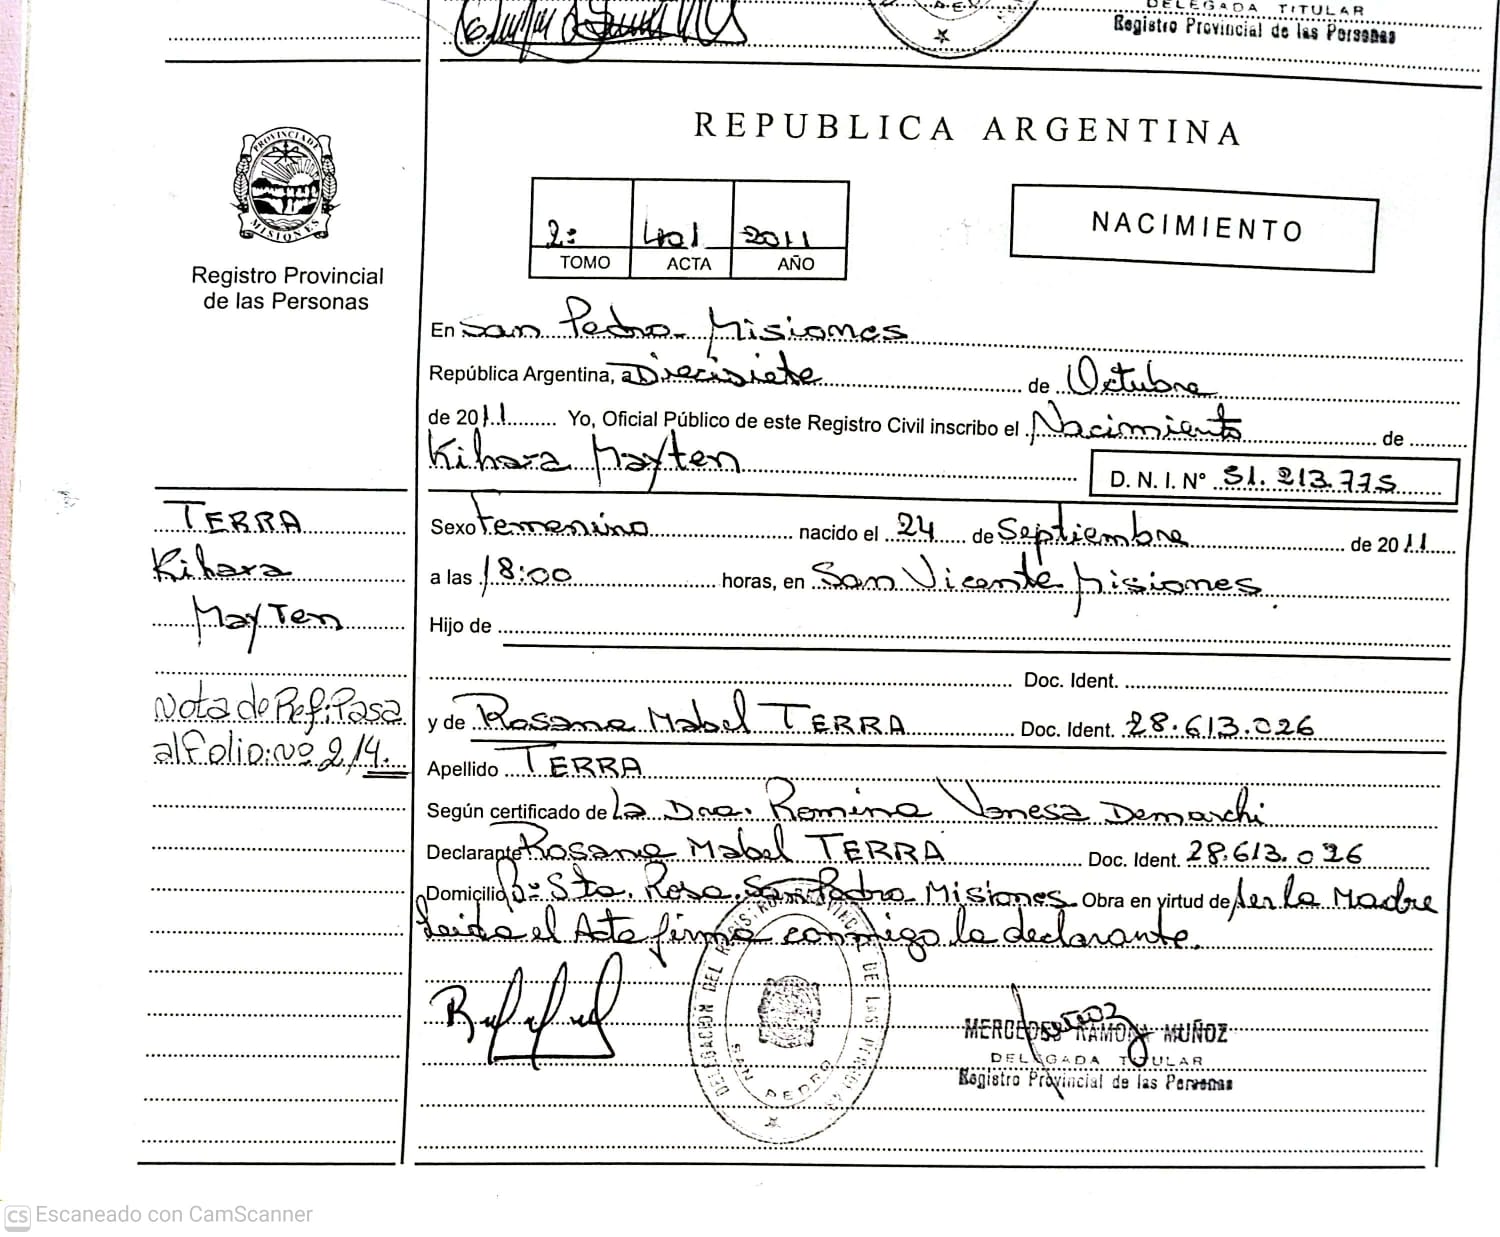 DELEGADA TITULAR
Registro Provincial de las Personas
PROVINCIA DE
MISIONES
Registro Provincial
de las Personas
REPUBLICA ARGENTINA
2º 401 2011
TOMO ACTA AÑO
NACIMIENTO
En San Pedro - Misiones
República Argentina, a Diecisiete de Octubre
de 2011 Yo, Oficial Público de este Registro Civil inscribo el Nacimiento de
Kihara Mayten
D. N. I. Nº 51.213.775
TERRA
Kihara
Mayten
Nota de Ref: Pasa
al Folio: nº 214.
Sexo Femenino nacido el 24 de Septiembre de 2011
a las 18:00 horas, en San Vicente Misiones.
Hijo de
Doc. Ident.
y de Rosana Mabel TERRA Doc. Ident. 28.613.026
Apellido TERRA
Según certificado de La Dra. Romina Vanesa Demarchi
Declarante Rosana Mabel TERRA Doc. Ident. 28.613.026
Domicilio Bº Sta. Rosa. San Pedro Misiones Obra en virtud de ser la Madre
Leida el Acta firma conmigo la declarante.
DELEGACION DEL REGISTRO PROVINCIAL DE LAS PERSONAS
SAN PEDRO
MERCEDES RAMONA MUÑOZ
DELEGADA TITULAR
Registro Provincial de las Personas
CS Escaneado con CamScanner